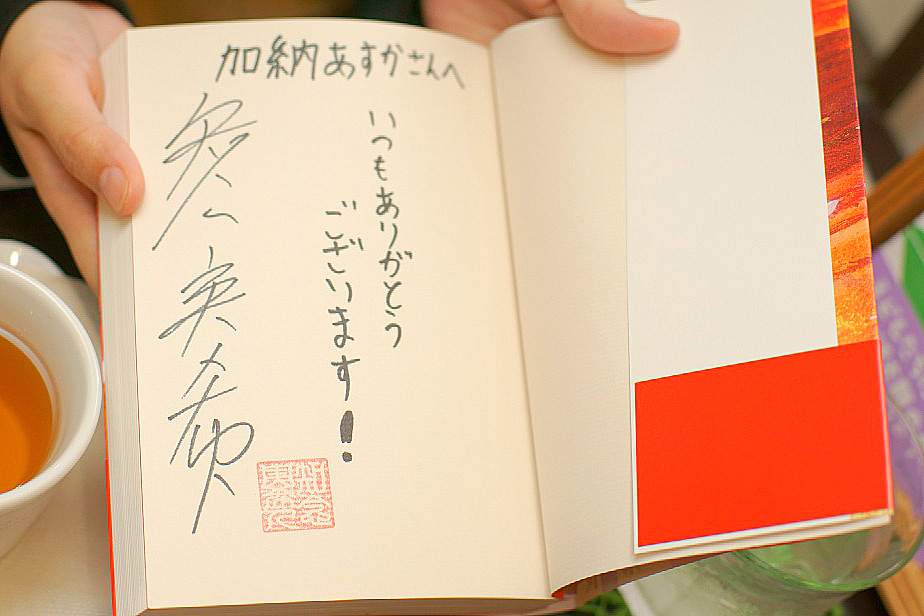 加納あすかさんへ
いつもありがとう
ございます!
知念実希人